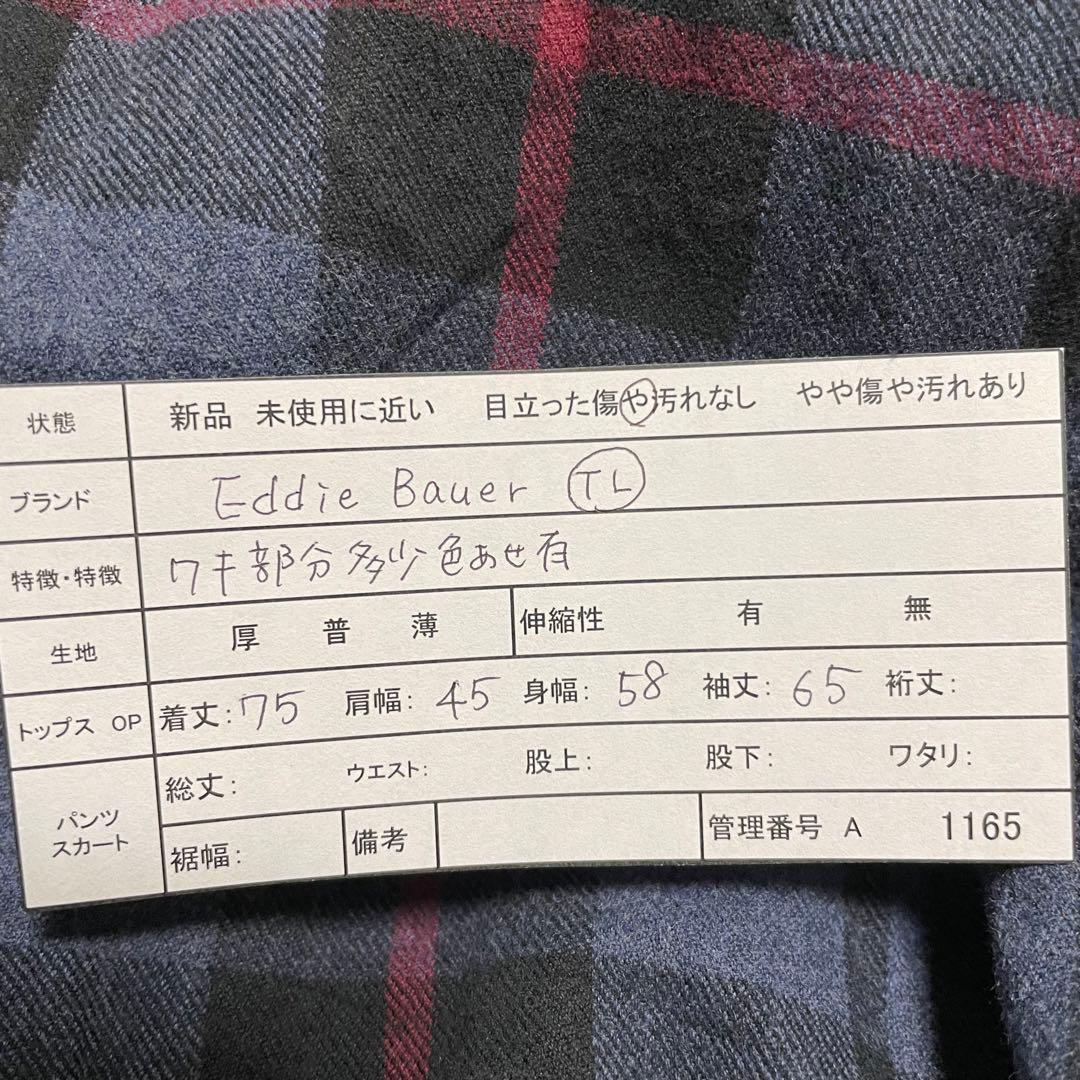 状態 新品 未使用に近い 目立った傷や汚れなし やや傷や汚れあり
ブランド Eddie Bauer TL
特徴・特徴 ワキ部分多少色あせ有
生地 厚 普 薄 伸縮性 有 無
トップス OP 着丈:75 肩幅:45 身幅:58 袖丈:65 裄丈:
パンツ スカート 総丈: ウエスト: 股上: 股下: ワタリ:
裾幅: 備考 管理番号 A 1165